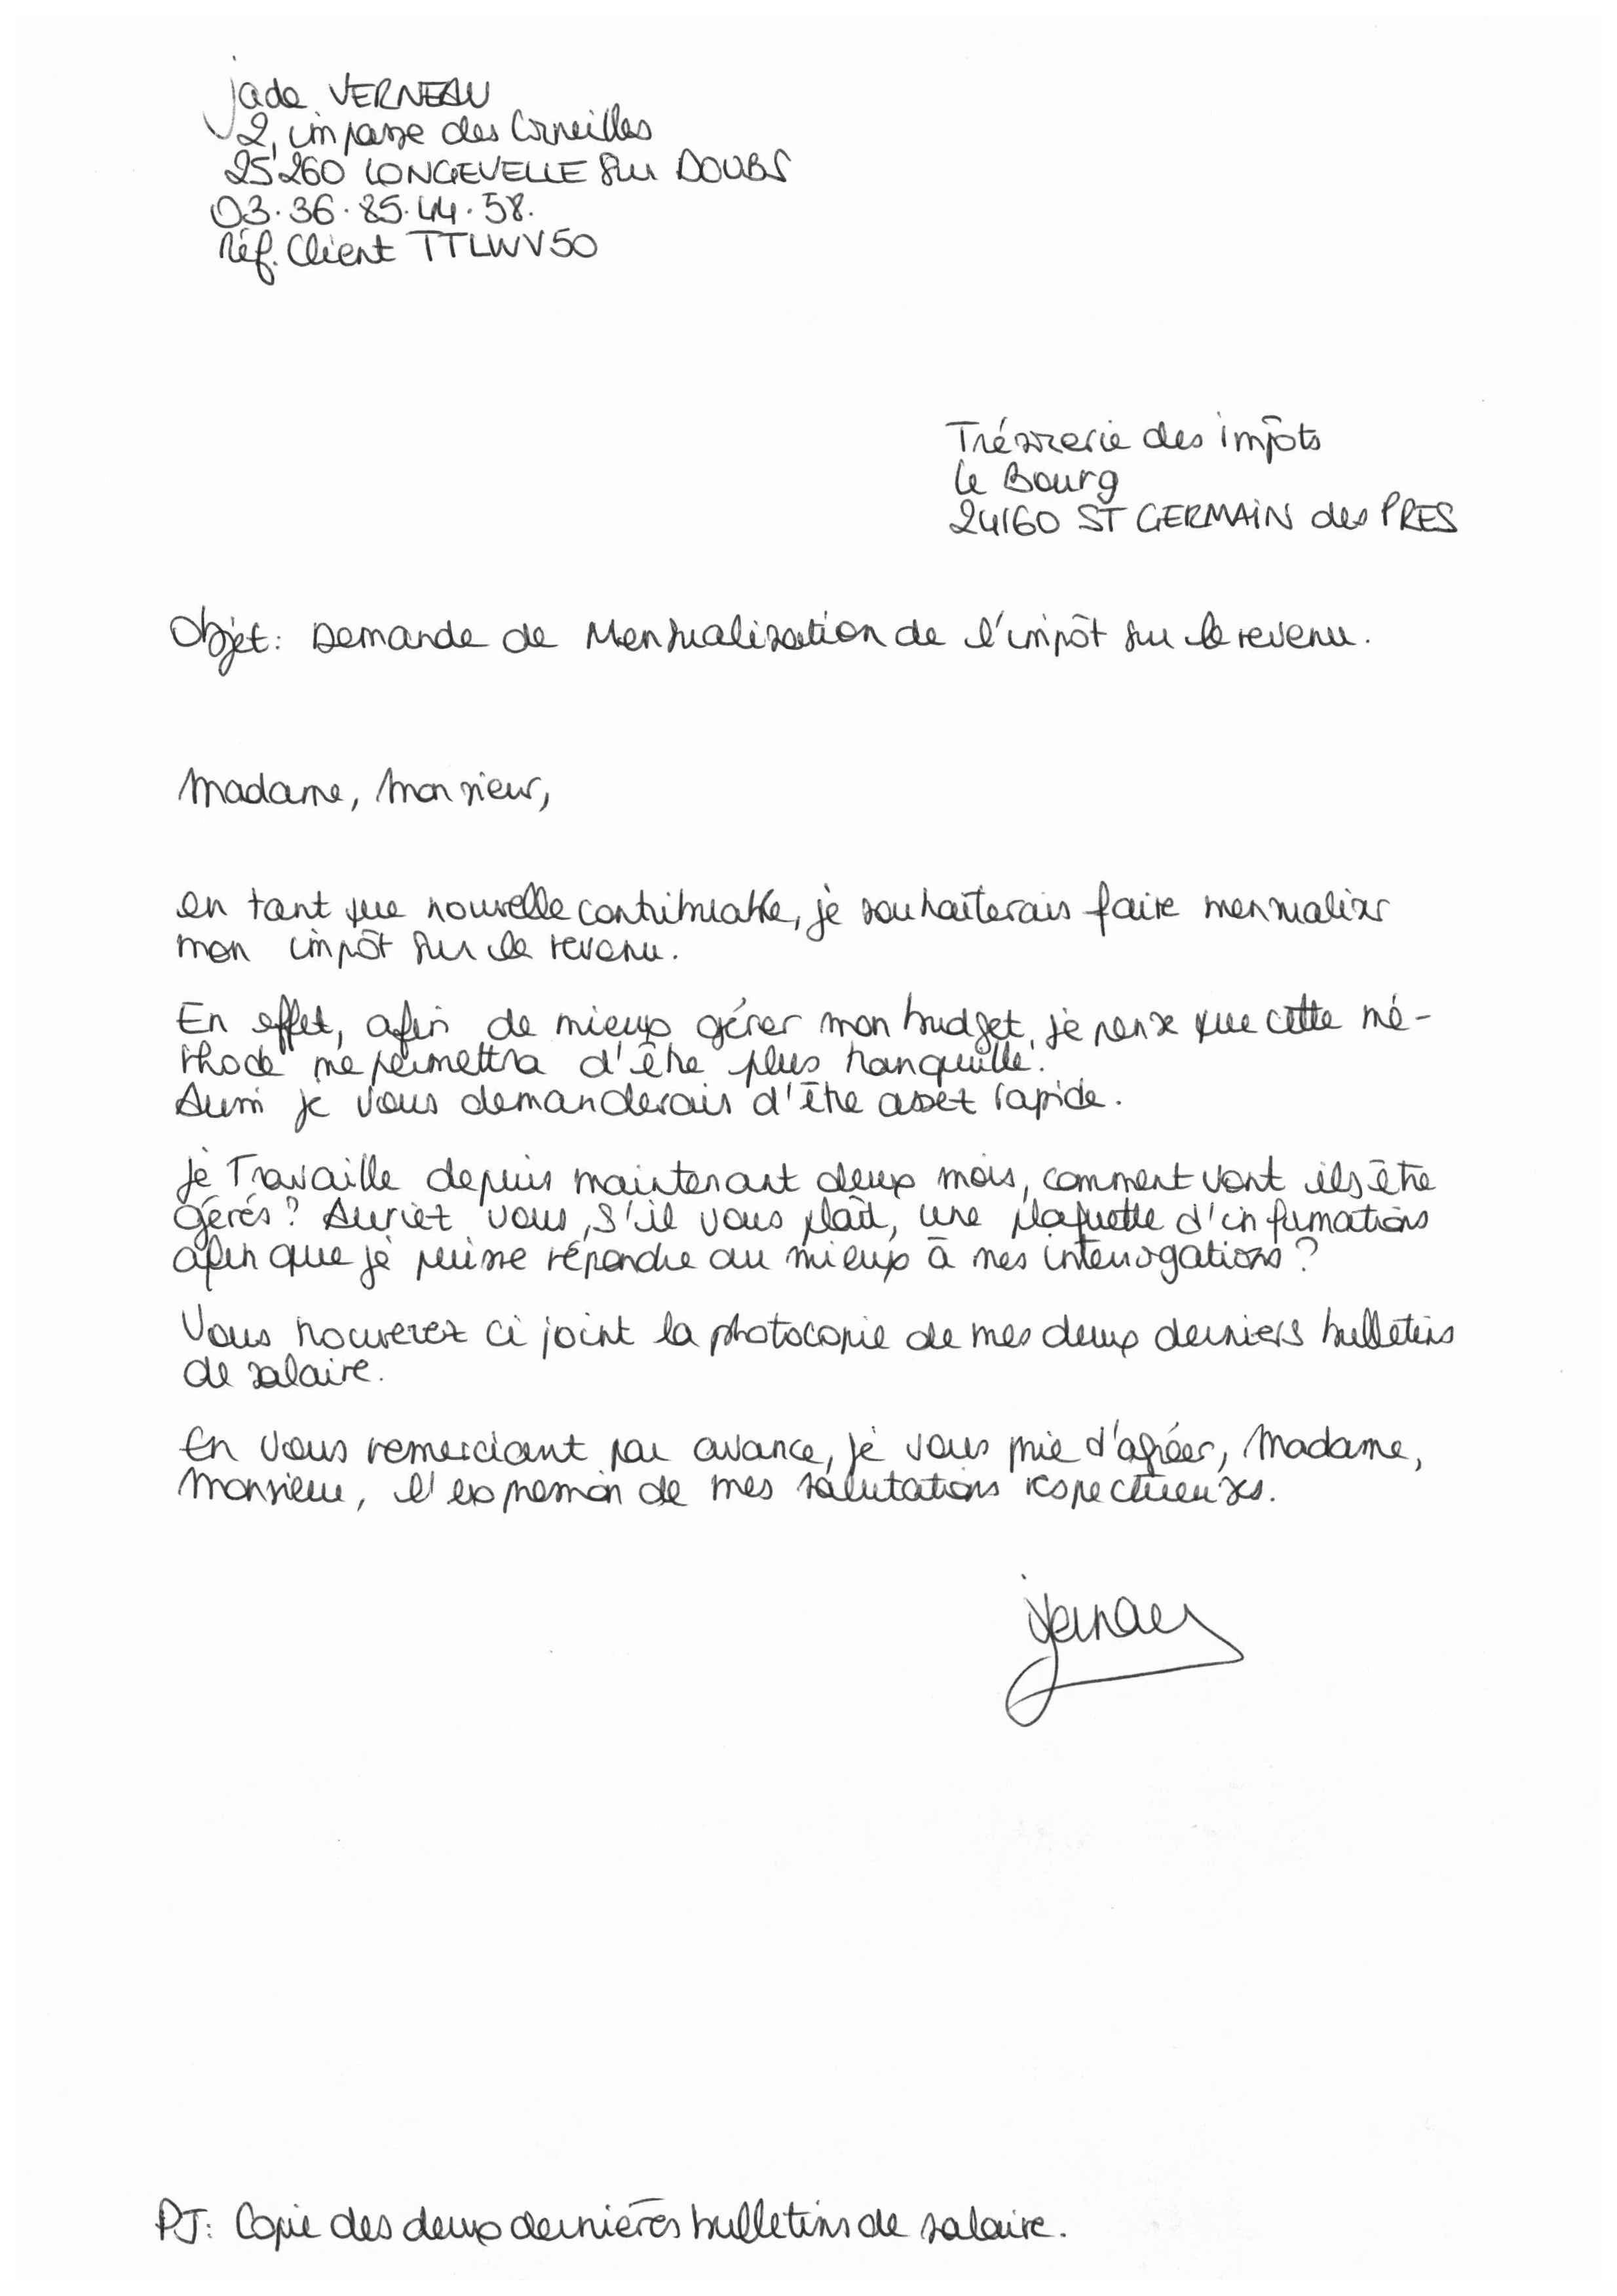 Jade VERNEAU
2, impasse des Corneilles
25260 LONGEVELLE sur DOUBS
03.36.85.44.58.
Réf. Client TTLWV50
Trésorerie des impôts
Le Bourg
24160 ST GERMAIN des PRES
Objet: Demande de Mensualisation de l'impôt sur le revenu.
Madame, Monsieur,
en tant que nouvelle contribuable, je souhaiterais faire mensualiser
mon impôt sur le revenu.
En effet, afin de mieux gérer mon budget, je pense que cette mé-
thode me permettra d'être plus tranquille.
Aussi je vous demanderais d'être assez rapide.
Je Travaille depuis maintenant deux mois, comment vont ils être
gérés? Auriez vous, s'il vous plaît, une plaquette d'informations
afin que je puisse répondre au mieux à mes interrogations?
Vous trouverez ci joint la photocopie de mes deux derniers bulletins
de salaire.
En vous remerciant par avance, je vous prie d'agréer, Madame,
Monsieur, l'expression de mes salutations respectueuses.
PJ: Copie des deux dernières bulletins de salaire.